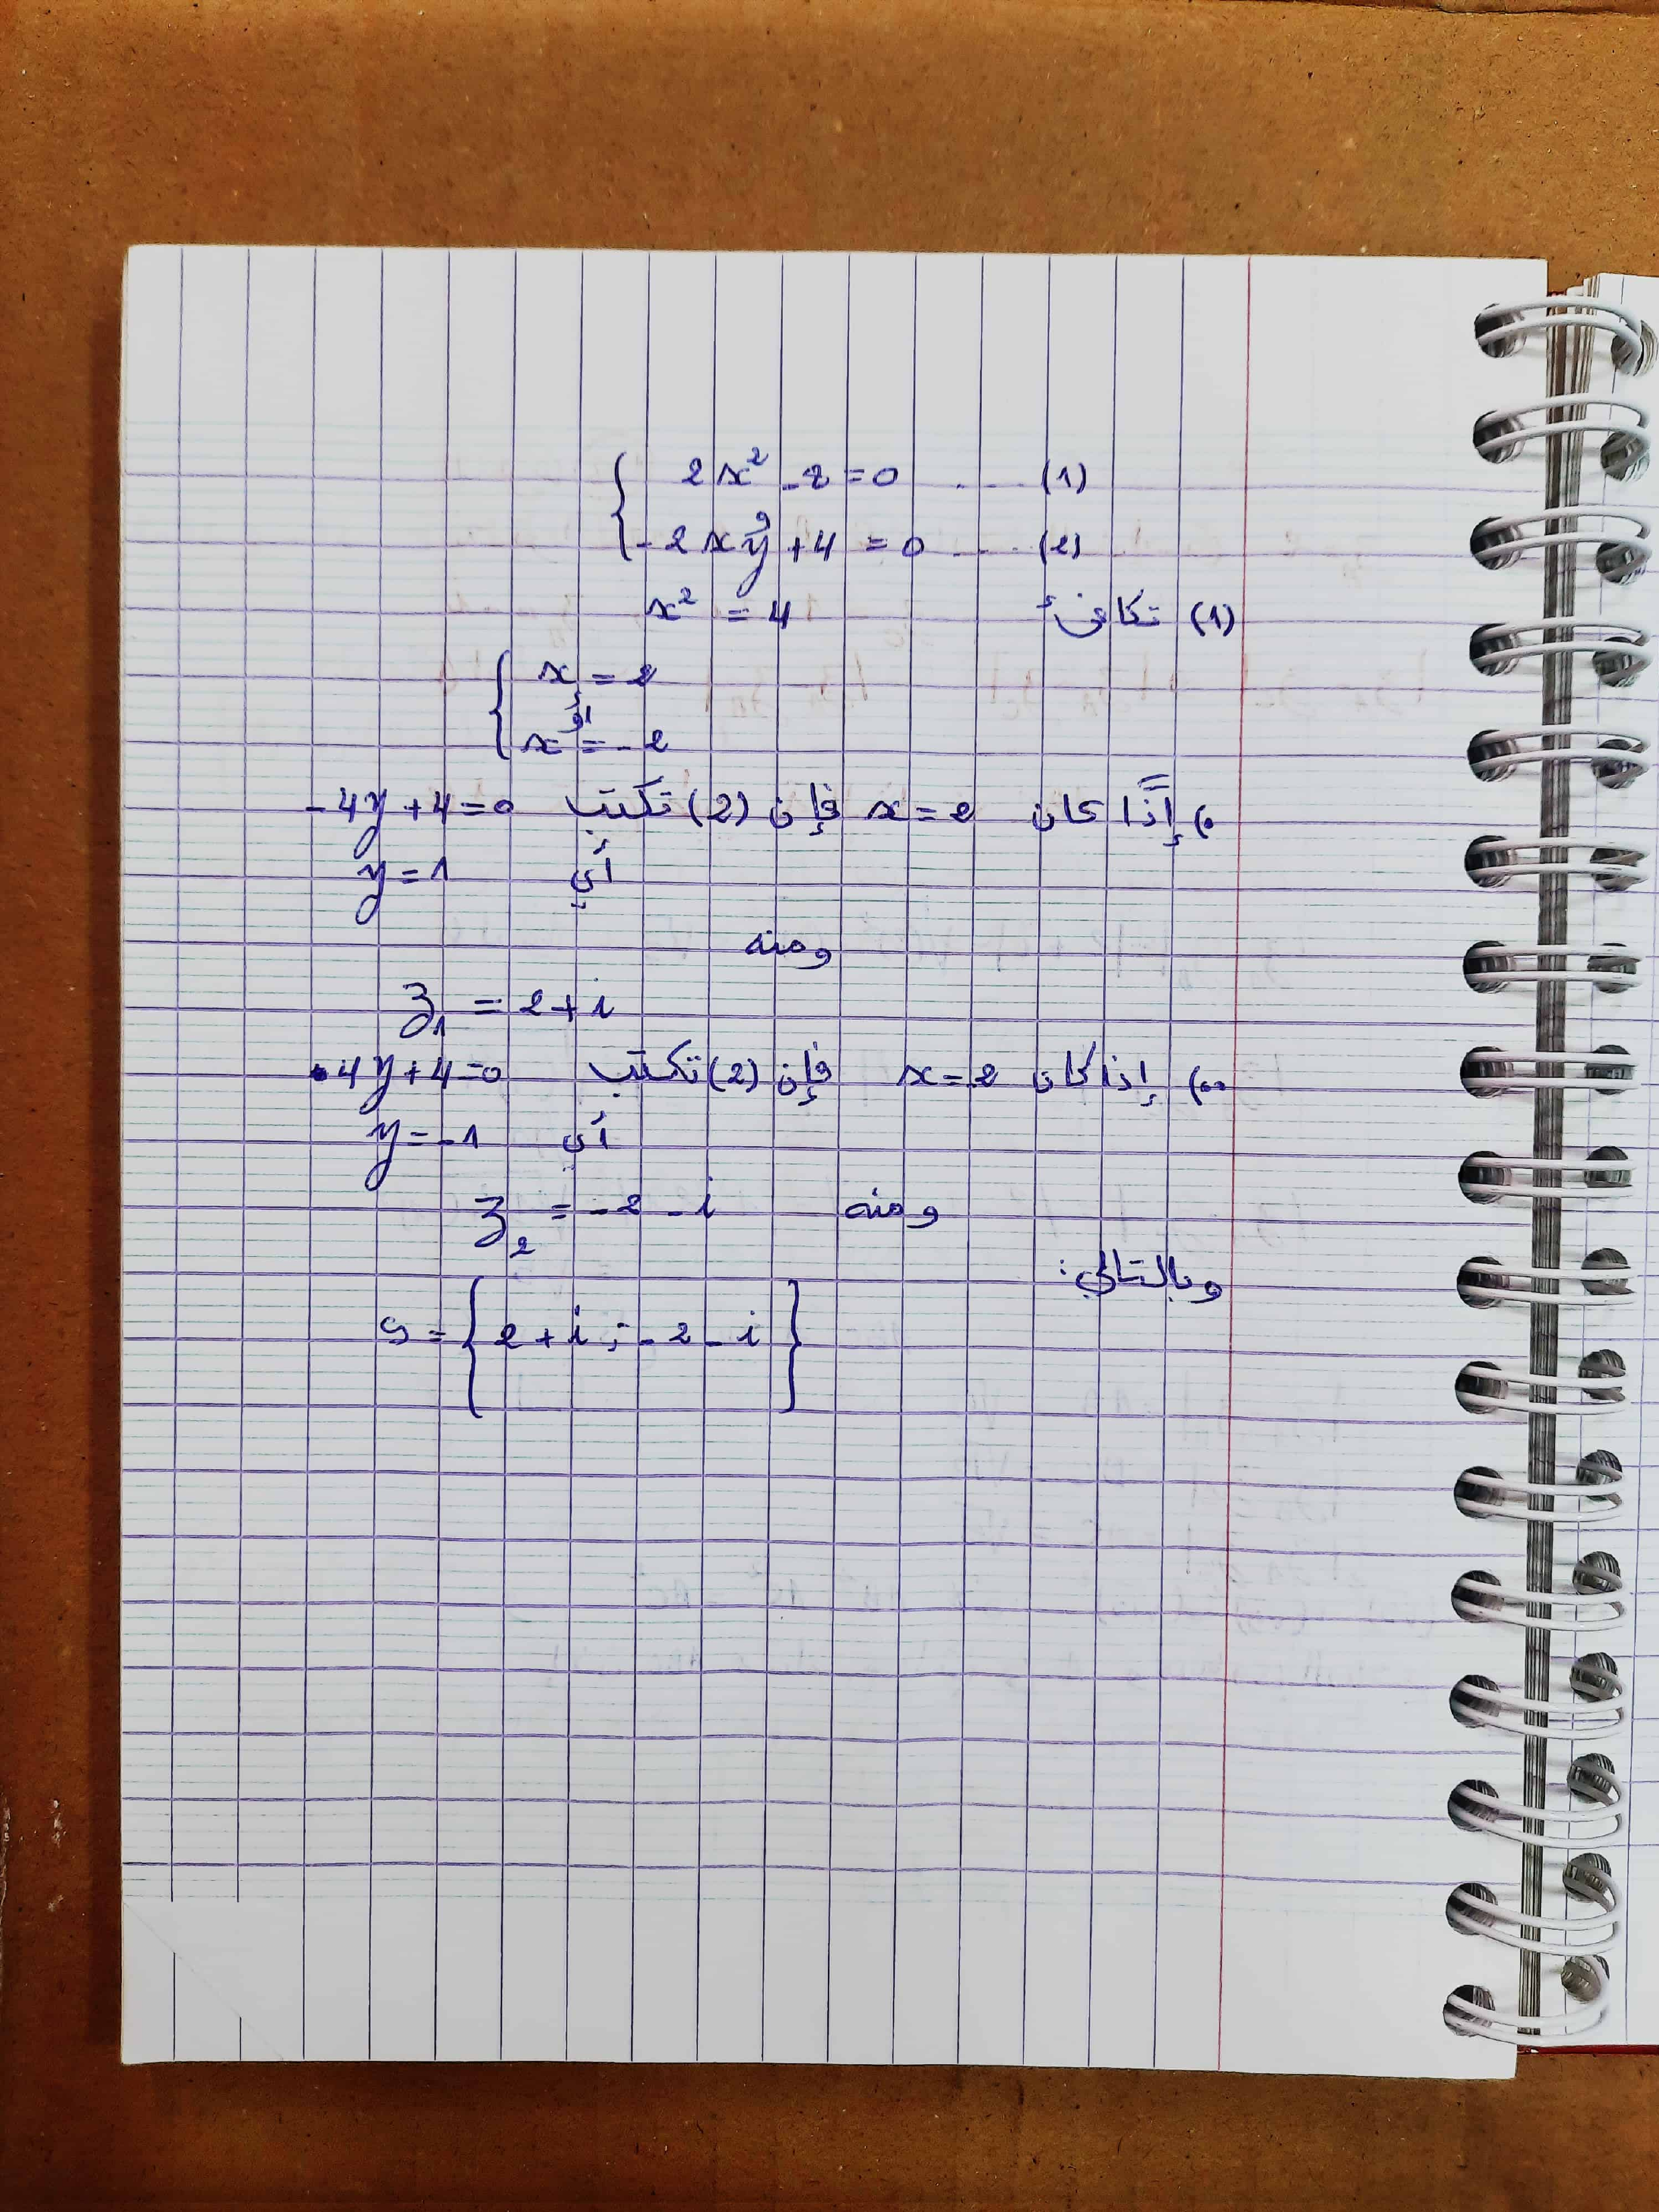 { 2x² - 2 = 0 ... (1)
- 2xy + 4 = 0 ... (2)
(1) تكافئ x² = 4
{ x = 2
أو
x = - 2
•) إذا كان x = 2 فإن (2) تكتب - 4y + 4 = 0
أي y = 1
ومنه
z₁ = 2 + i
••) إذا كان x = 2 فإن (2) تكتب 4y + 4 = 0
أي y = - 1
ومنه z₂ = - 2 - i
وبالتالي:
S = { 2 + i ; - 2 - i }